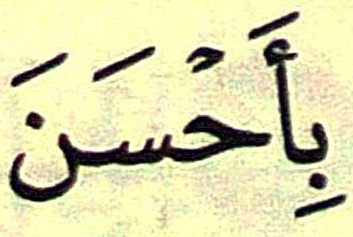 بِأَحْسَنَ